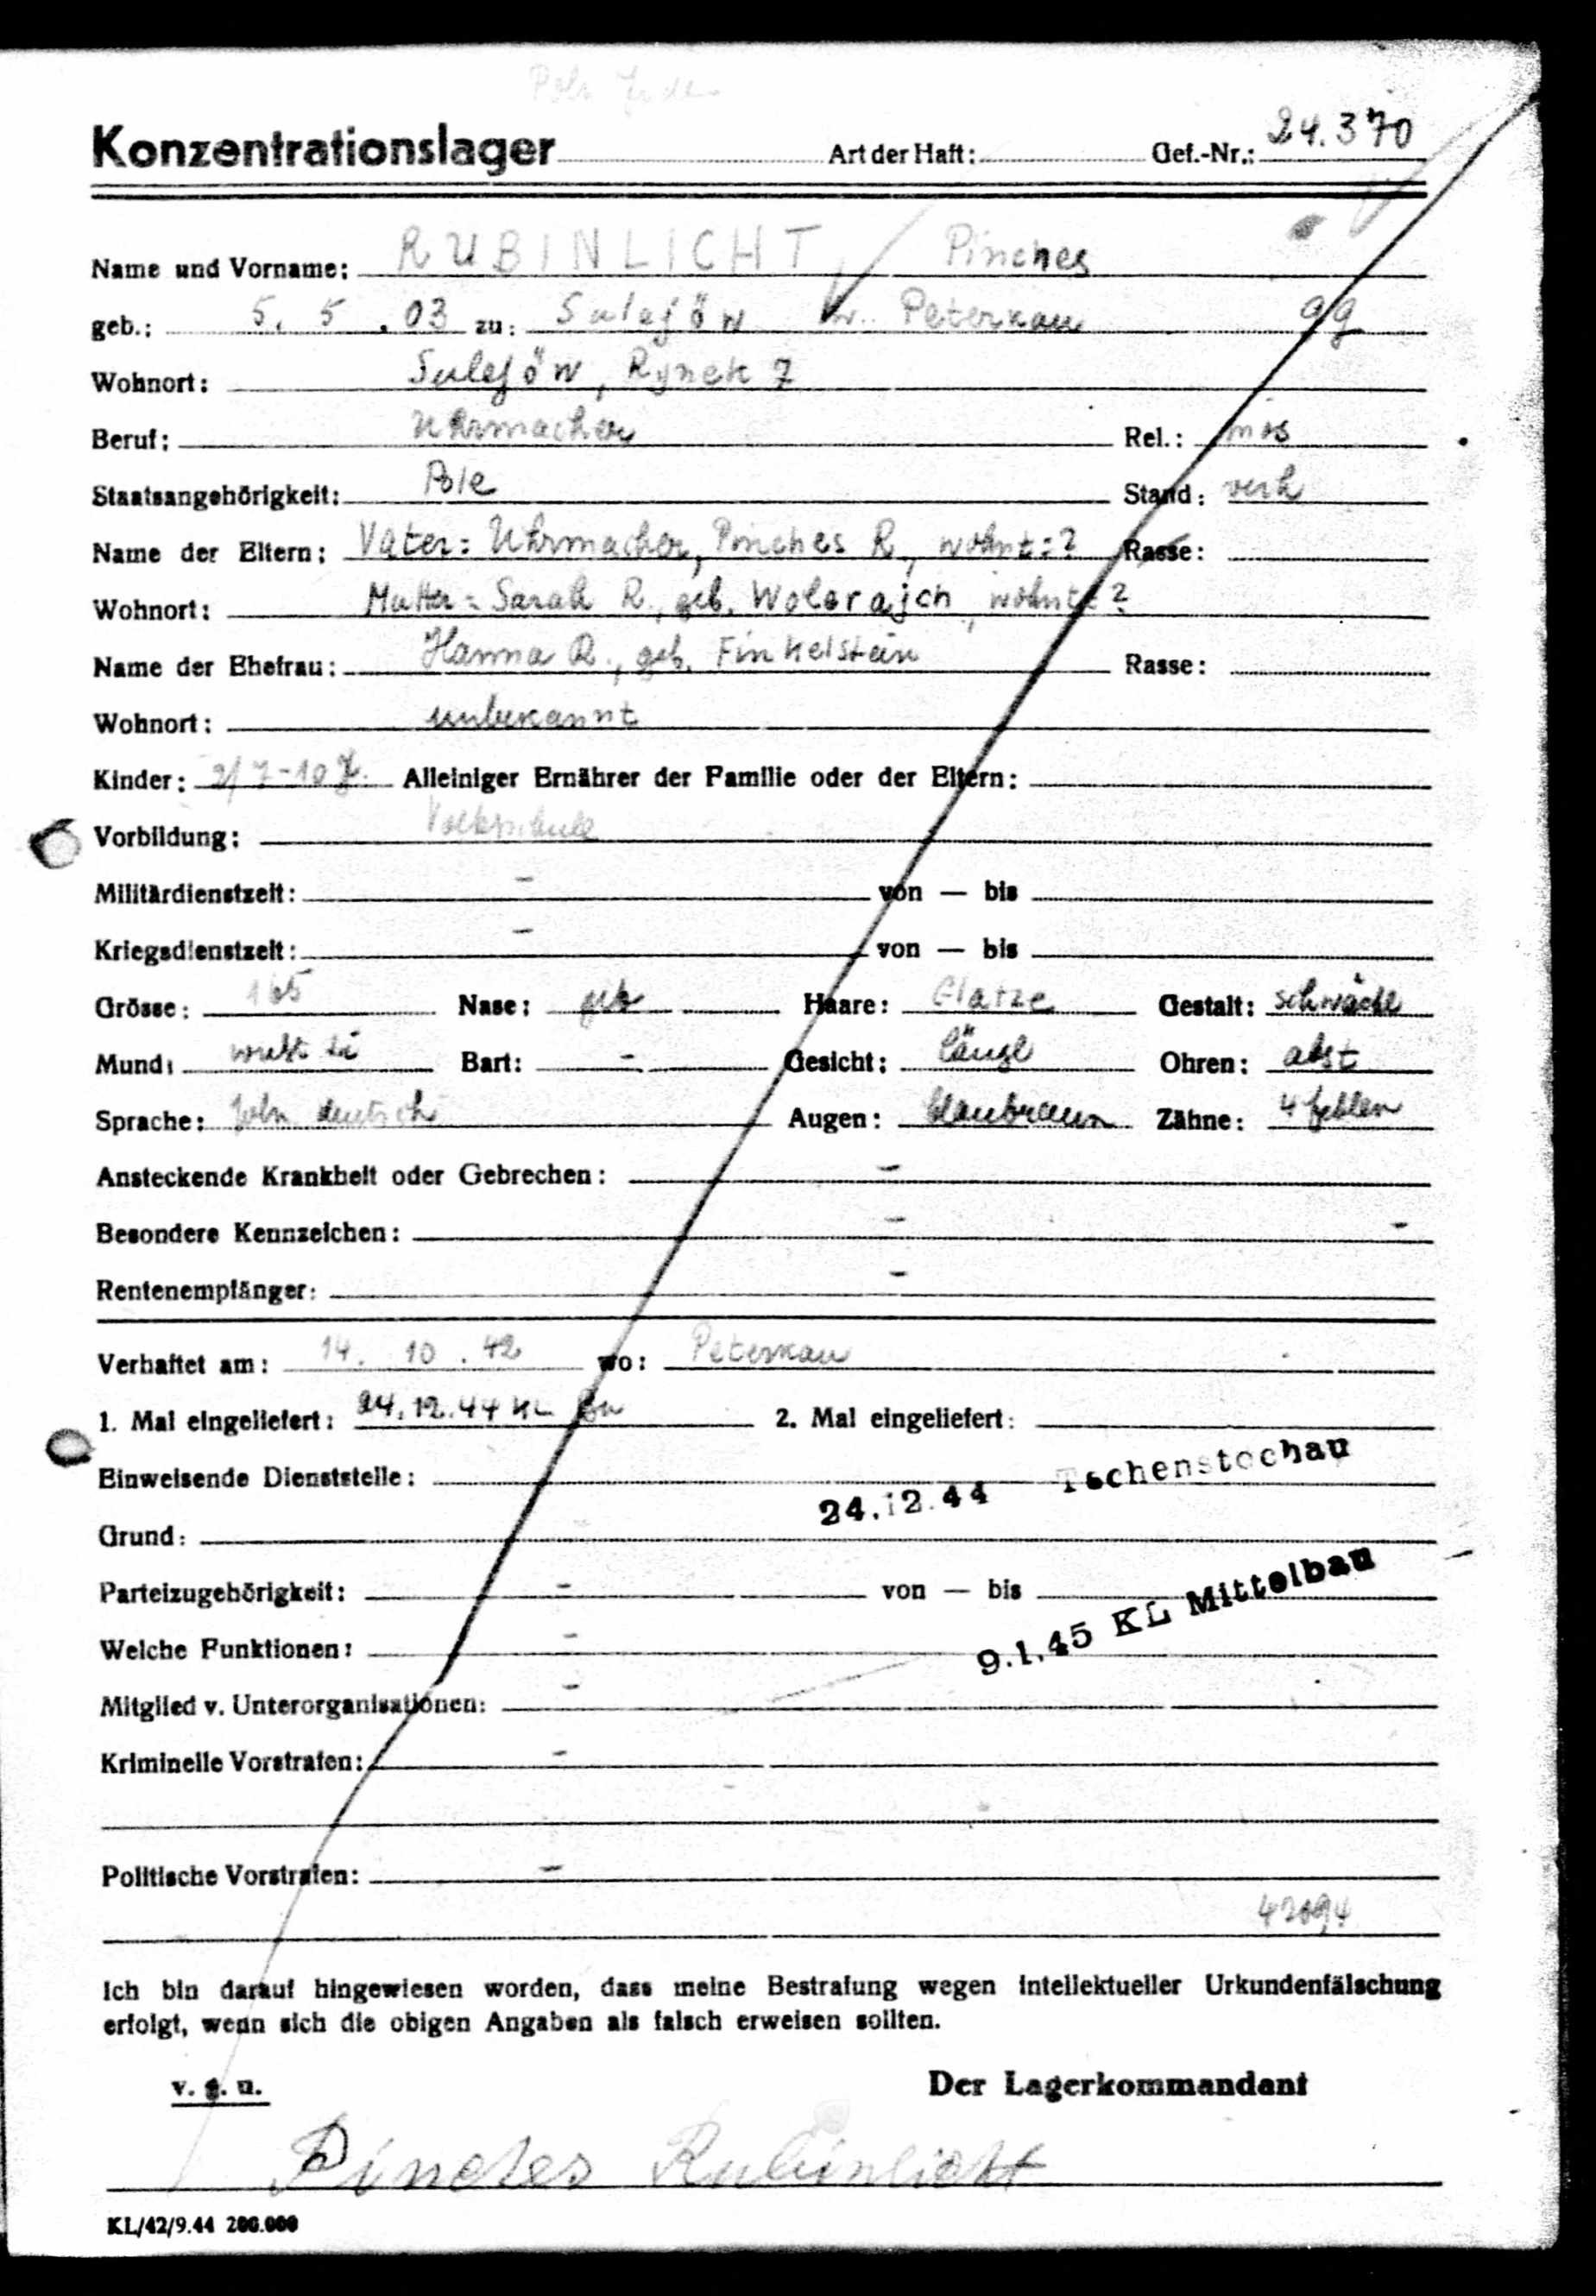 Poln Jude
Konzentrationslager Art der Haft: Gef.-Nr.: 24.370
Name und Vorname: RUBINLICHT, Pinches
geb.: 5. 5. 03 zu: Sulejöw Kr. Peterkau
Wohnort: Sulejöw, Rynek 7
Beruf: Uhrmacher Rel.: mos
Staatsangehörigkeit: Pole Stand: verh
Name der Eltern: Vater: Uhrmacher, Pinches R., wohnt:? Rasse:
Wohnort: Mutter: Sarah R., geb. Wolsrajch, wohnt:?
Name der Ehefrau: Hanna R., geb. Finkelstein Rasse:
Wohnort: unbekannt
Kinder: 2/7-10 J. Alleiniger Ernährer der Familie oder der Eltern:
Vorbildung: Volksschule
Militärdienstzeit: - von — bis
Kriegsdienstzeit: - von — bis
Grösse: 165 Nase: geb Haare: Glatze Gestalt: schwächl
Mund: Bart: - Gesicht: längl Ohren: abst
Sprache: poln deutsch Augen: blaubraun Zähne: 4 fehlen
Ansteckende Krankheit oder Gebrechen: -
Besondere Kennzeichen: - -
Rentenempfänger: -
Verhaftet am: 14. 10. 42 wo: Peterkau
1. Mal eingeliefert: 24.12.44 KL Bu 2. Mal eingeliefert:
Einweisende Dienststelle: 24.12.44 Tschenstochau
Grund:
Parteizugehörigkeit: - von — bis
9.1.45 KL Mittelbau
Welche Funktionen: -
Mitglied v. Unterorganisationen: -
Kriminelle Vorstrafen: -
Politische Vorstrafen: -
42094
Ich bin darauf hingewiesen worden, dass meine Bestrafung wegen intellektueller Urkundenfälschung
erfolgt, wenn sich die obigen Angaben als falsch erweisen sollten.
v. g. u. Der Lagerkommandant
Pinches Rubinlicht
KL/42/9.44 200.000